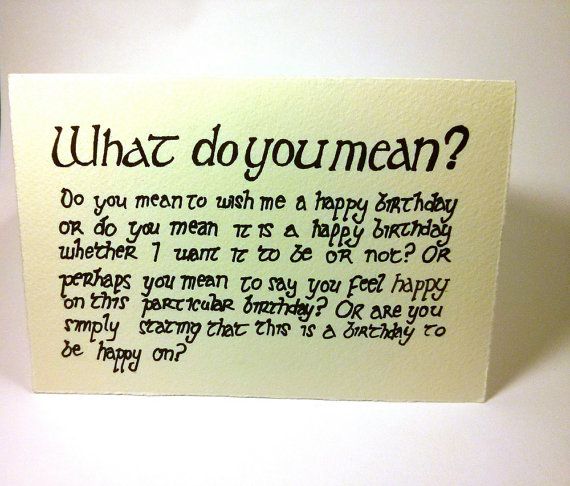 What do you mean?
Do you mean to wish me a happy birthday
or do you mean it is a happy birthday
whether I want it to be or not? Or
perhaps you mean to say you feel happy
on this particular birthday? Or are you
simply stating that this is a birthday to
be happy on?